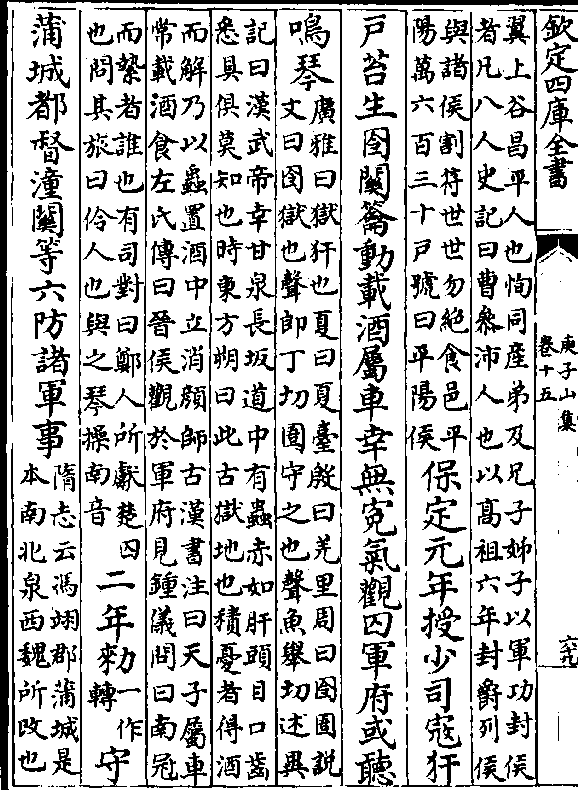 欽定四庫全書
庾子山集
卷十五
六九
翼上谷昌平人也恂同産弟及兄子姊子以軍功封侯
者凡八人史記曰曹參沛人也以髙祖六年封爵列侯
與諸侯割符世世勿絶食邑平
陽萬六百三十戸號曰平陽侯
保定元年授少司寇犴
戸苔生囹闗籥動載酒屬車幸無寃氣觀囚軍府或聽
鳴琴
廣雅曰獄犴也夏曰夏臺殷曰羑里周曰囹圄説
文曰囹獄也聲郎丁切圄守之也聲魚舉切述異
記曰漢武帝幸甘泉長坂道中有蟲赤如肝頭目口齒
悉具俱莫知也時東方朔曰此古獄地也積憂者得酒
而解乃以蟲置酒中立消顔師古漢書注曰天子屬車
常載酒食左氏傳曰晉侯觀於軍府見鍾儀問曰南冠
而縶者誰也有司對曰鄭人所獻楚囚
也問其族曰伶人也與之琴操南音
二年勑
一作
轉
守
蒲城都督潼闗等六防諸軍事
隋志云馮翊郡蒲城是
本南北泉西魏所改也